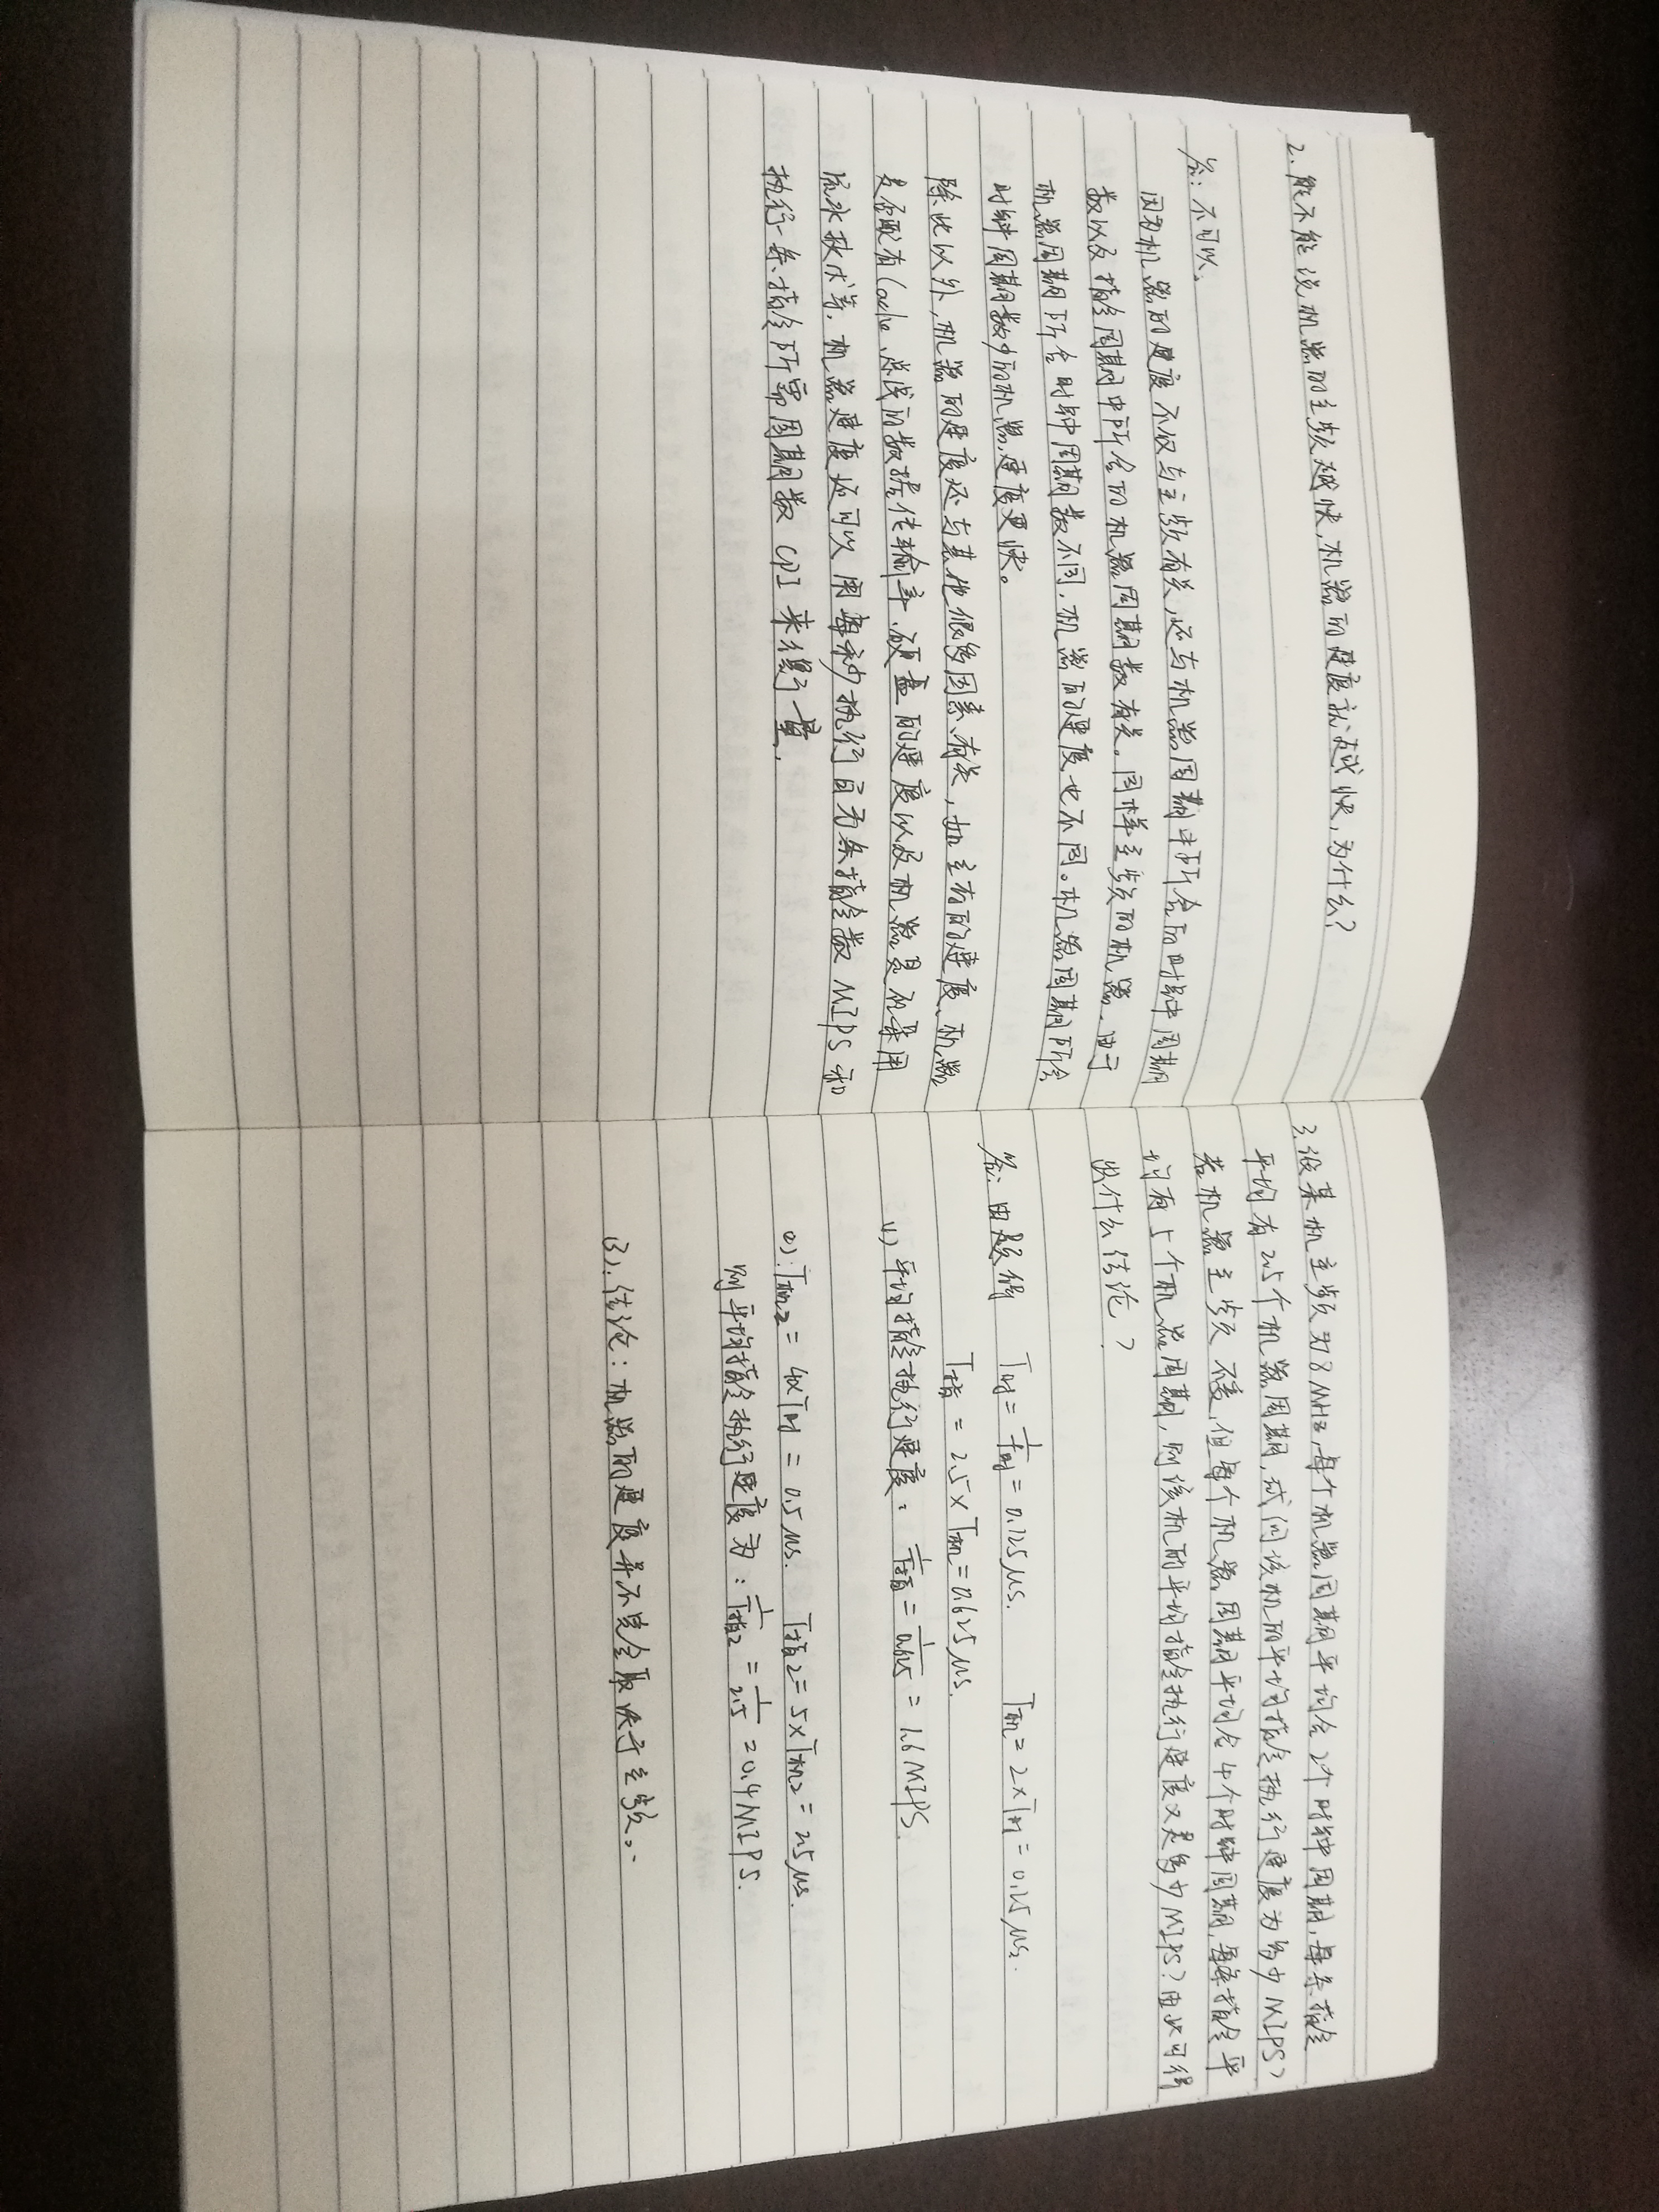 2. 能不能说机器的主频越快,机器的速度就越快,为什么?
答: 不可以、
因为机器的速度不仅与主频有关,还与机器周期中所含的时钟周期
数以及指令周期中所含的机器周期数有关。同样主频的机器,由于
机器周期所含时钟周期数不同,机器的速度也不同。机器周期所含
时钟周期数少的机器,速度更快。
除此以外,机器的速度还与其他很多因素有关,如主存的速度、机器
是否配有Cache、总线的数据传输率、硬盘的速度以及机器是否采用
流水技术等. 机器速度还可以用每秒执行百万条指令数MIPS和
执行一条指令所需周期数CPI来衡量.
3.设某机主频为8MHz,每个机器周期平均含2个时钟周期,每条指令
平均有2.5个机器周期,试问该机的平均指令执行速度为多少MIPS?
若机器主频不变,但每个机器周期平均含4个时钟周期,每条指令平
均有5个机器周期,则该机的平均指令执行速度又是多少MIPS?由此可得
出什么结论?
答: 由题得 T时=1/f时=0.125μs. T机=2×T时=0.25μs.
T指=2.5×T机=0.625μs.
(1) 平均指令执行速度: 1/T指=1/0.625=1.6MIPS.
(2):T机2=4×T时=0.5μs. T指2=5×T机2=2.5μs.
则平均指令执行速度为: 1/T指2=1/2.5=0.4MIPS.
(3). 结论:机器的速度并不完全取决于主频。